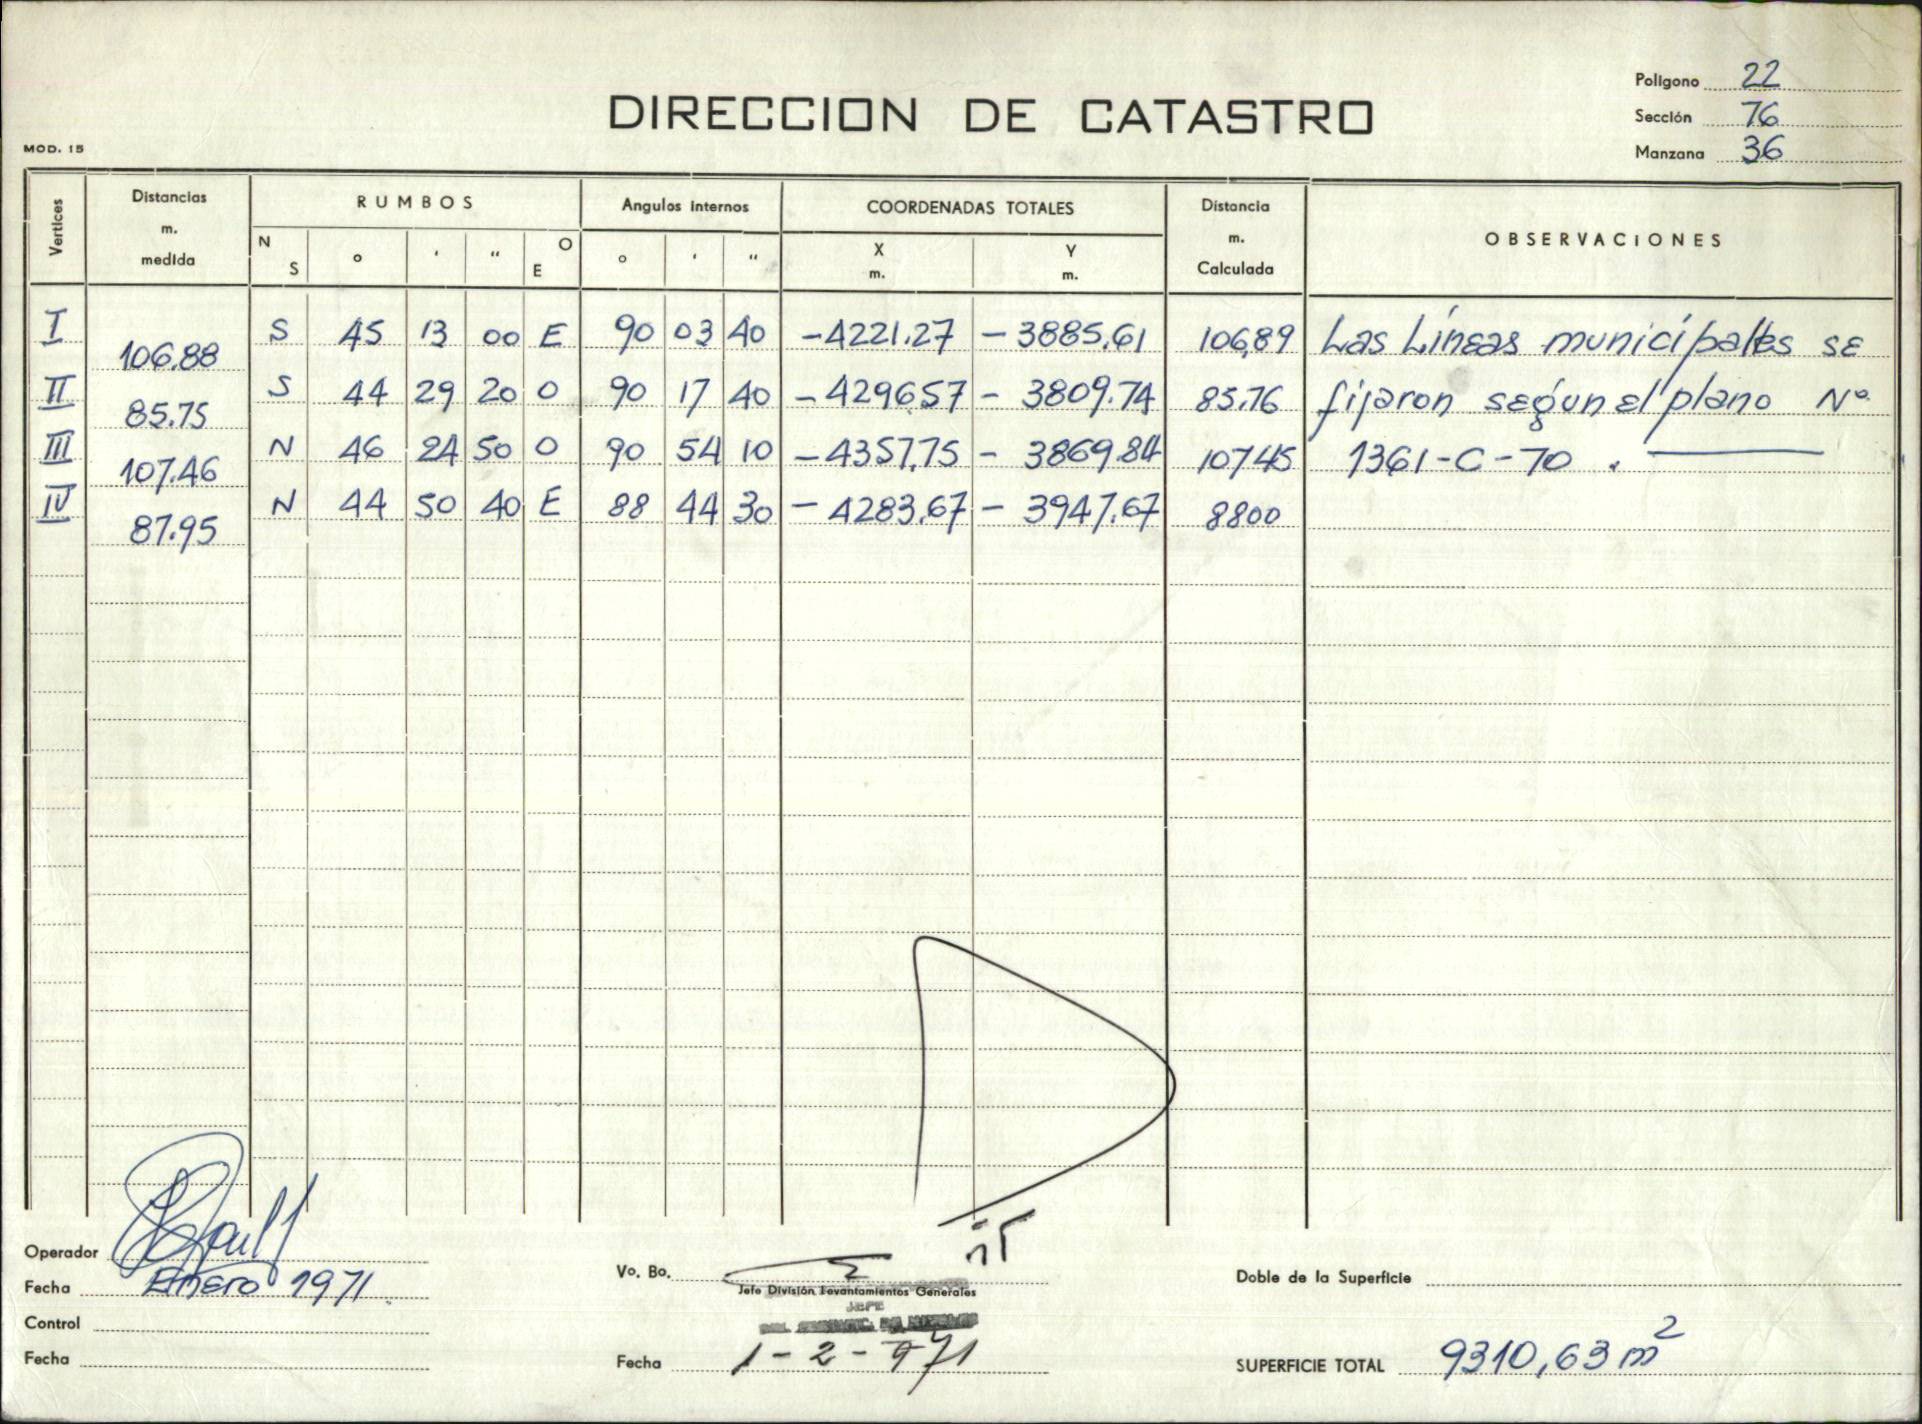 Poligono 22
DIRECCION DE CATASTRO
Sección 76
MOD. 15
Manzana 36
Vertices Distancias m. medida RUMBOS Angulos internos COORDENADAS TOTALES Distancia m. Calculada OBSERVACIONES
N S ° ' " O E ° ' " X m. Y m.
I 106.88 S 45 13 00 E 90 03 40 -4221.27 -3885.61 106,89 Las Líneas municipales se
II 85.75 S 44 29 20 O 90 17 40 -4296.57 -3809.74 85.76 fijaron según el plano Nº
III 107.46 N 46 24 50 O 90 54 10 -4357.75 -3869.84 10745 1361-C-70.
IV 87.95 N 44 50 40 E 88 44 30 -4283.67 -3947.67 8800
Operador
Fecha Enero 1971.
Control
Fecha
Vo. Bo.
Jefe División Levantamientos Generales
JEFE
Fecha 1-2-971
Doble de la Superficie
SUPERFICIE TOTAL 9310,63 m²